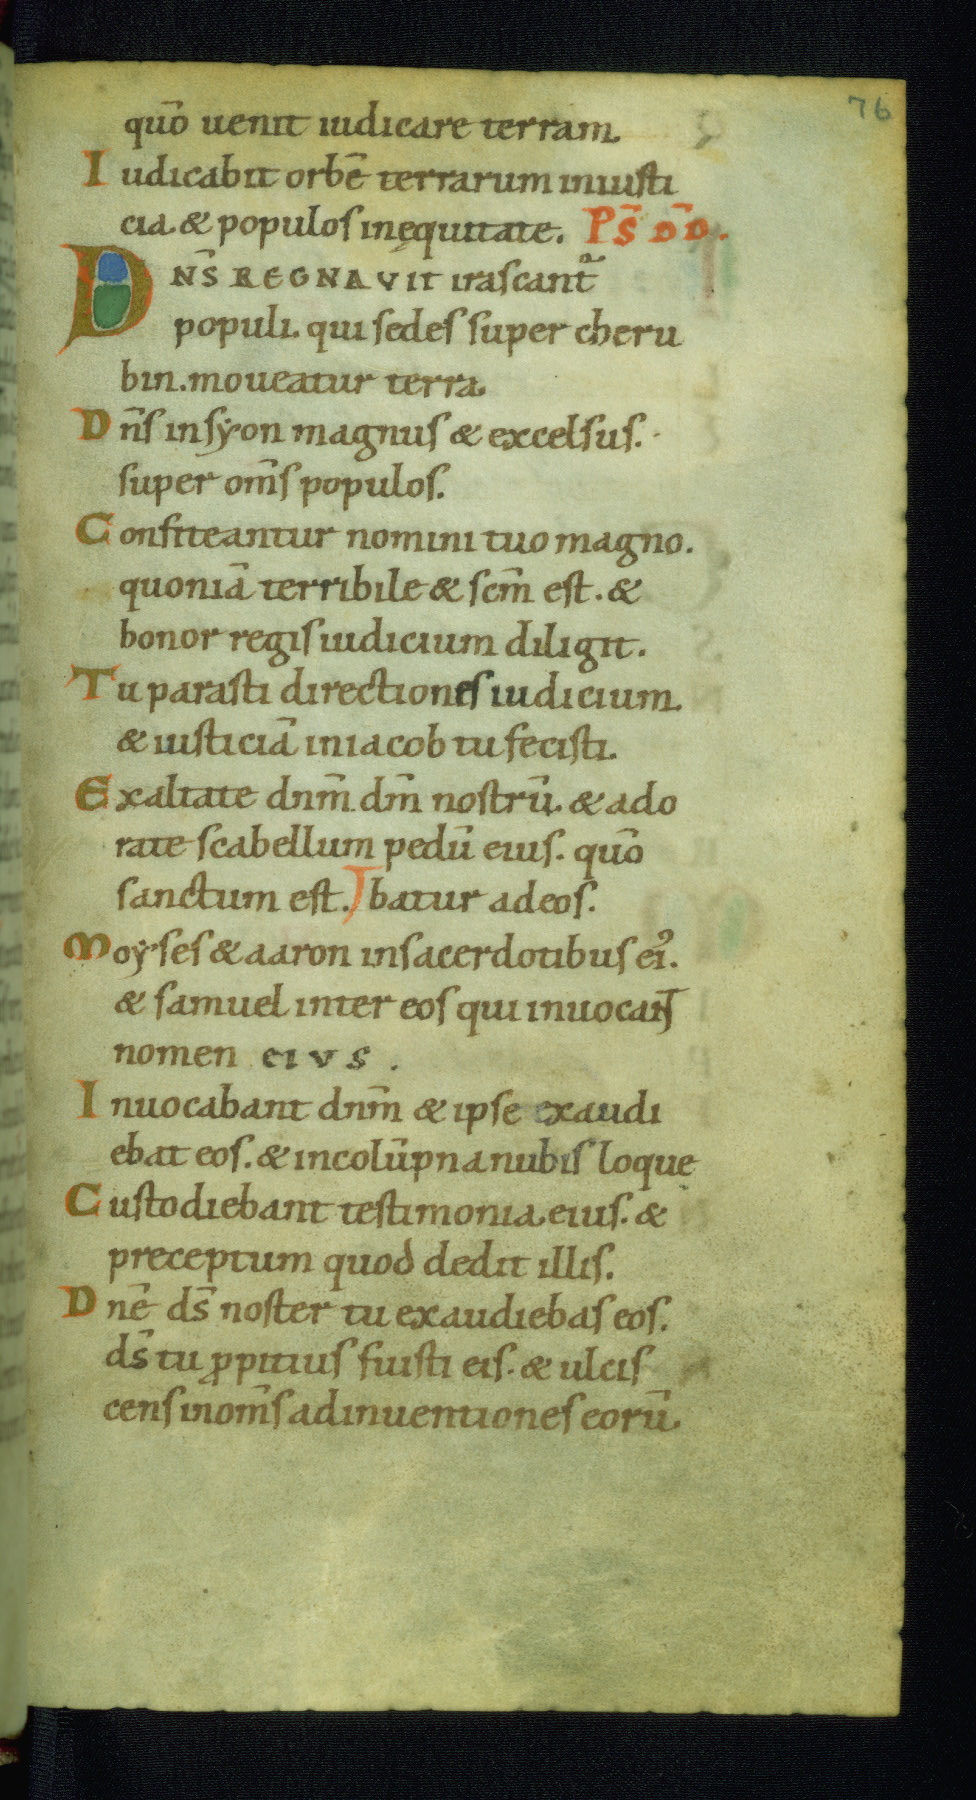 76
quō uenit iudicare terram.
Iudicabit orbē terrarum iniusti
cia. & populos inęquitate. PS̄ DD̄.
DNS̄ REGNAVIT irascant̄
populi. qui sedes super cheru
bin. moueatur terra.
Dn̄s insyon magnus & excelsus.
super om̄s populos.
Confiteantur nomini tuo magno.
quoniā terribile & scm̄ est. &
honor regis iudicium diligit.
Tu parasti directiones iudicium.
& iusticiā iniacob tu fecisti.
Exaltate dnm̄ dm̄ nostrū. & ado
rate scabellum pedū eius. quō
sanctum est. / batur adeos.
Moyses & aaron insacerdotibus ei᾿.
& samuel inter eos qui inuocant
nomen eius.
Inuocabant dnm̄ & ipse exaudi
ebat eos. & incolūpna nubis loque
Custodiebant testimonia eius. &
preceptum quod dedit illis.
Dnē ds̄ noster tu exaudiebas eos.
ds̄ tu ꝓpitius fuisti eis. & ulcis
cens inom̄s adinuentiones eorū.